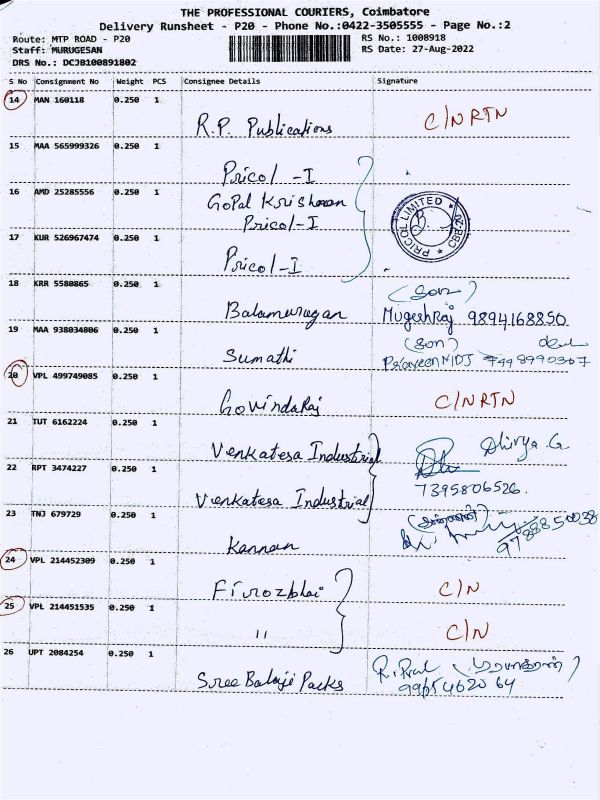 THE PROFESSIONAL COURIERS, Coimbatore
Delivery Runsheet - P20 - Phone No.:0422-3505555 - Page No.:2
Route: MTP ROAD - P20 RS No.: 1008918
Staff: MURUGESAN RS Date: 27-Aug-2022
DRS No.: DCJB100891802
S No Consignment No Weight PCS Consignee Details Signature
14 MAN 160118 0.250 1
R.P. Publications C/N RTN
15 MAA 565999326 0.250 1
Pricol -I
16 AMD 25285556 0.250 1
GoPal Krishnan
Pricol-I
PRICOL LIMITED * CBE-20 *
17 KUR 526967474 0.250 1
Pricol-I
18 KRR 5580865 0.250 1
(Son)
Balamurugan MugeshRaj 9894168850
19 MAA 938034806 0.250 1
(Son)
Sumathi
20 VPL 499749085 0.250 1
GovindaRaj C/N RTN
21 TUT 6162224 0.250 1
Venkatesa Industrial Dhivya.G
22 RPT 3474227 0.250 1
7395806526.
Venkatesa Industrial
23 TNJ 679729 0.250 1
Kannan 9788850038
24 VPL 214452309 0.250 1
Firozbhai C/N
25 VPL 214451535 0.250 1
" C/N
26 UPT 2084254 0.250 1
Sree Balaji Packs